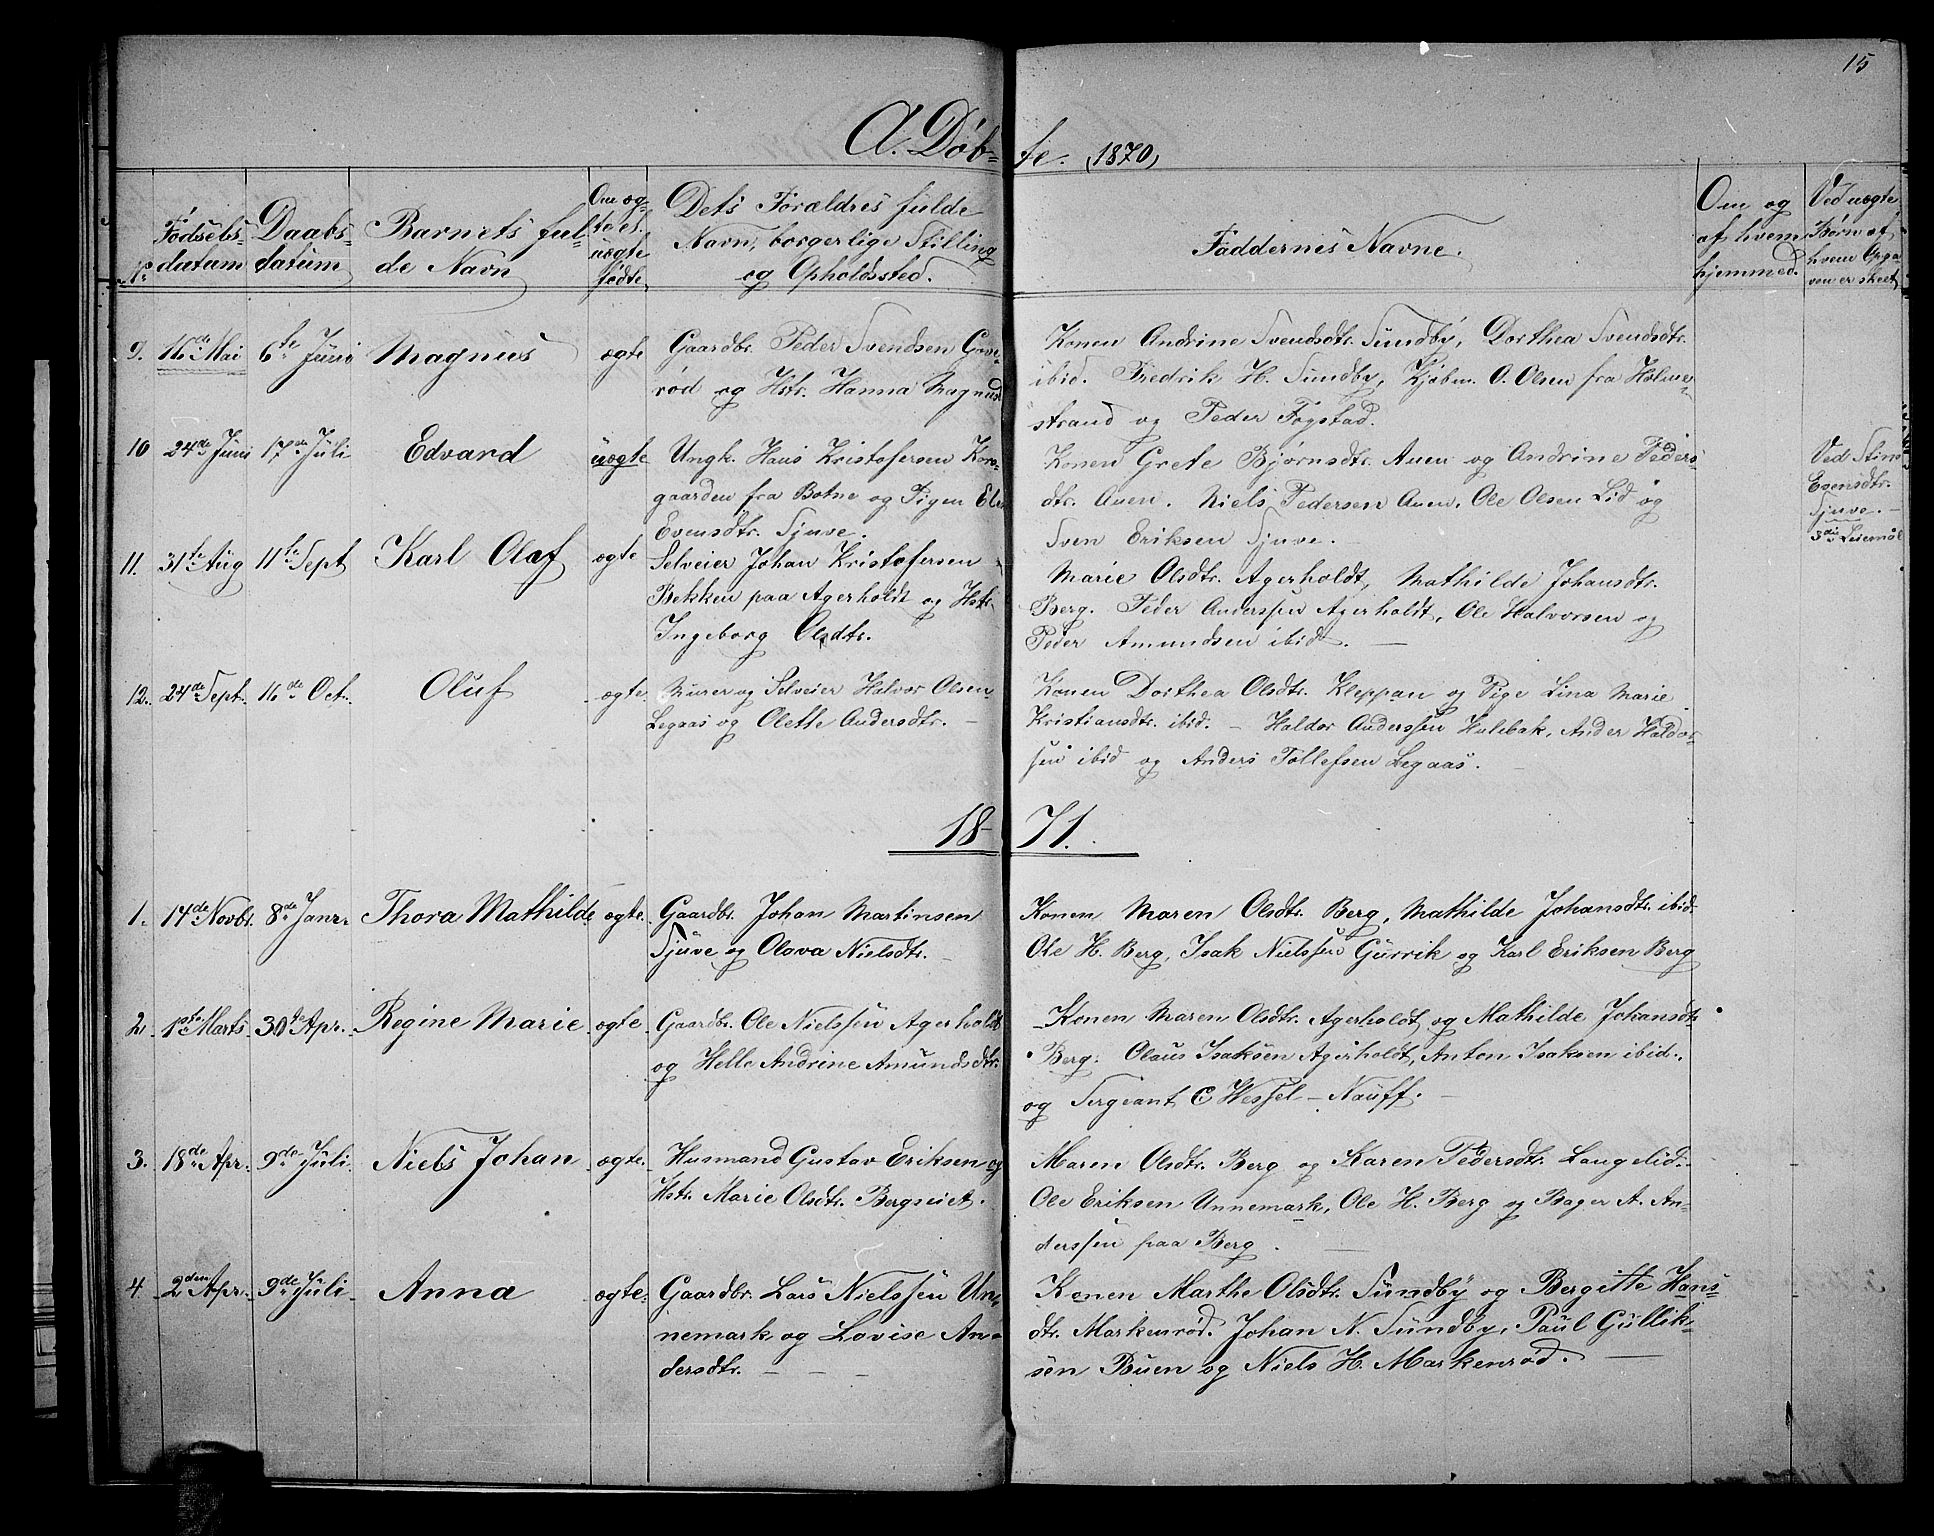 15
A. Døb-
te. (1870)
No
Fødsels-
datum
Daabs-
datum
Barnets ful-
de Navn
Om æg-
te el.
uægte
fødte
Dets Forældres fulde
Navn, borgerlige Stilling
og Opholdssted.
Faddernes Navne.
Om og
af hvem
hjemmed.
Ved uægte
Børn af
hvem Opga
ven er skeet
9. 16de Mai 6te Juni Magnus ægte
Gaardbr. Peder Svendsen Gove-
rød og Hstr. Hanna Magnusd
Konen Andrine Svendsdtr. Sundby, Dorthea Svendsdtr.
ibid. Fredrik H. Sundby, Kjøbm. O. Olsen fra Holme-
strand og Peder Fogstad.
10 24de Juni 17de Juli Edvard uægte
Ungk. Hans Kristofersen Kro-
gaarden fra Botne og Pigen
Evensdtr. Sjuve.
Konen Grete Bjørnsdtr. Auen og Andrine Peders-
dtr. Auen. Niels Pedersen Auen, Ole Olsen Lid og
Sven Eriksen Sjuve.
Ved Stine
Evensdtr.
Sjuve. -
3die Leiemål
11. 31te Aug 11te Sept Karl Olaf ægte
Selveier Johan Kristofersen
Bekken paa Agerholdt og Hstr.
Ingeborg Olsdtr.
Marie Olsdtr. Agerholdt, Mathilde Johansdtr.
Berg. Peder Anderssen Agerholdt, Ole Halvorsen og
Peder Amundsen ibid. -
12. 24de Sept. 16de Oct. Oluf ægte
Murer og Selveier Halvor Olsen
Legaas og Olette Andersdtr. -
Konen Dorthea Olsdtr. Kleppan og Pige Lina Marie
Kristiansdtr. ibid. - Haldor Anderssen Hulebak, Ander Haldor-
sen ibid og Anders Tollefsen Legaas. -
18-71.
1. 14de Novbr. 8de Janr. Thora Mathilde ægte.
Gaardbr. Johan Martinsen
Sjuve og Olava Nielsdtr. -
Konen Maren Olsdtr. Berg, Mathilde Johansdtr. ibid.
Ole H. Berg, Isak Nielssen Gurrik og Karl Eriksen Berg
2 1ste Marts 30te Apr. Regine Marie ægte
Gaardbr. Ole Nielssen Agerholdt
og Helle Andrine Amundsdtr.
Konen Maren Olsdtr. Agerholdt og Mathilde Johansdtr
Berg. Olaus Isaksen Agerholdt, Anton Isaksen ibid.,
og Sergeant C Wessel - Nauff. -
3. 18de Apr. 9de Juli Niels Johan ægte.
Husmand Gustav Eriksen og
Hstr. Marie Olsdtr. Bergseiet.
Maren Olsdtr. Berg og Karen Pedersdtr. Langelid.
Ole Eriksen Unnemark, Ole H. Berg og Bager A. An-
derssen paa Berg.
4 2den Apr. 9de Juli Anna ægte.
Gaardbr. Lars Nielssen Un-
nemark og Lovise An-
dersdtr. - - -
Konen Marthe Olsdtr. Sundby og Bergitte Hans-
dtr. Markenrød. Johan N. Sundby, Paul Gullik-
sen Buen og Niels H. Markenrød. -